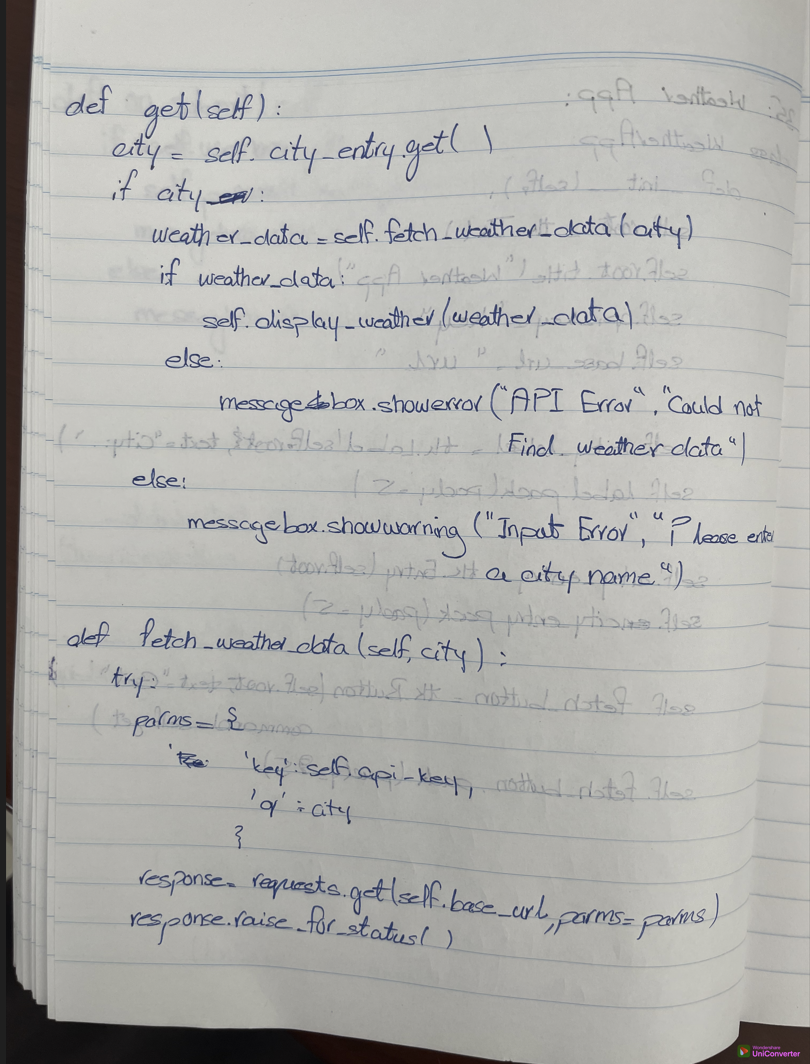 def get(self):
city = self. city_entry.get( )
if city :
weather_data = self.fetch_weather_data(city)
if weather_data:
self.display_weather(weather_data)
else:
messagebox.showerror("API Error", "Could not
Find weather data")
else:
messagebox.showwarning ("Input Error", "Please enter
a city name")
def fetch_weather_data(self, city):
try:
parms = {
'key': self.api_key,
'q' : city
}
response = requests.get(self.base_url, parms = parms)
response.raise_for_status( )
Wondershare
UniConverter